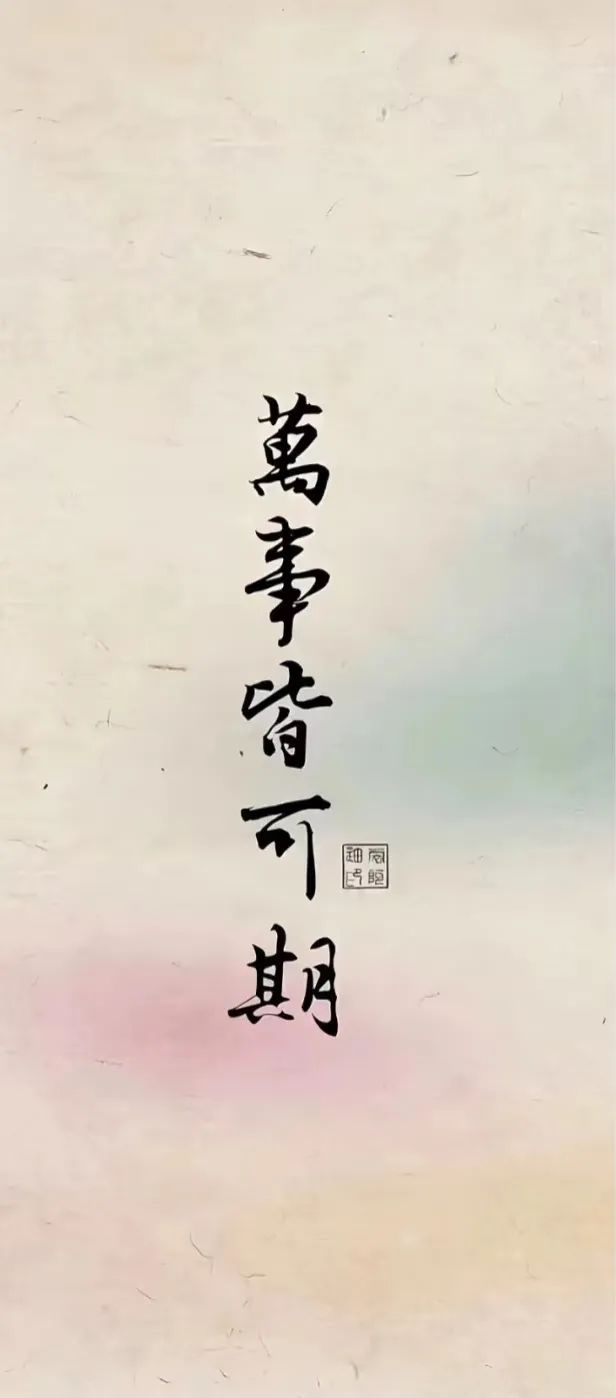 萬事皆可期